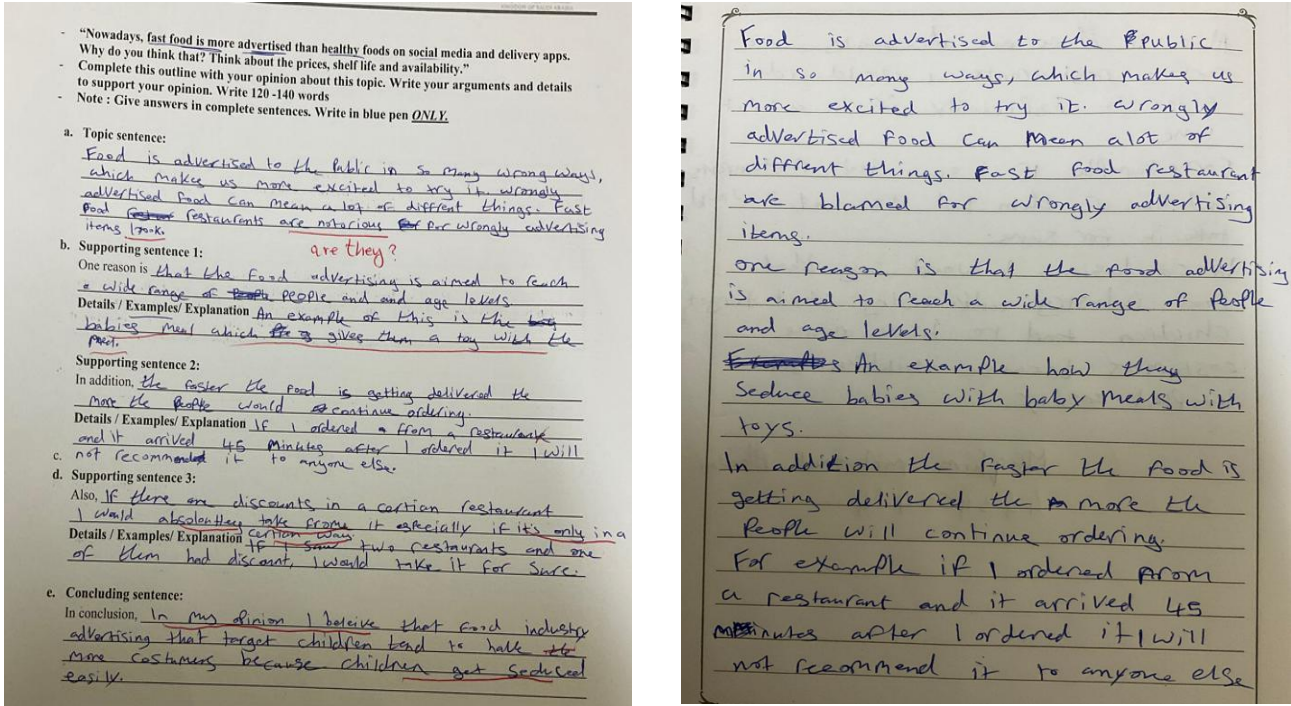 KINGDOM OF SAUDI ARABIA
- "Nowadays, fast food is more advertised than healthy foods on social media and delivery apps.
Why do you think that? Think about the prices, shelf life and availability."
- Complete this outline with your opinion about this topic. Write your arguments and details
to support your opinion. Write 120 -140 words
- Note : Give answers in complete sentences. Write in blue pen ONLY.
a. Topic sentence:
Food is advertised to the Public in so many wrong ways,
which makes us more excited to try it. wrongly
advertised food can mean a lot of diffrent things. Fast
food restaurants are notorious for for wrongly advertising
items look.
are they?
b. Supporting sentence 1:
One reason is that the food advertising is aimed to reach
a wide range of people and and age levels
Details / Examples/ Explanation An example of this is the
babies meal which gives them a toy with the
b. Supporting sentence 2:
In addition, the faster the food is getting delivered the
more the people would continue ordering.
Details / Examples/ Explanation If I ordered from a restaurant
and it arrived 45 minutes after I ordered it I will
c. not recommended it to anyone else.
d. Supporting sentence 3:
Also, If there are discounts in a certian restaurant
I would absoloutley take frome it especially if it's only in a
certian way.
Details / Examples/ Explanation If I saw two restaurants and one
of them had discount, I would take it for sure.
e. Concluding sentence:
In conclusion, In my opinion I beleive that food industry
advertising that target children tend to have
more costumers because children get seduced
easily.
Food is advertised to the public
in so many ways, which makes us
more excited to try it. wrongly
advertised food can mean alot of
diffrent things. Fast food restaurant
are blamed for wrongly advertising
items.
one reason is that the food advertising
is aimed to reach a wide range of people
and age levels.
An example how they
seduce babies with baby meals with
toys.
In addition the faster the food is
getting delivered the more the
people will continue ordering.
For example if I ordered from
a restaurant and it arrived 45
minutes after I ordered it I will
not recommend it to anyone else